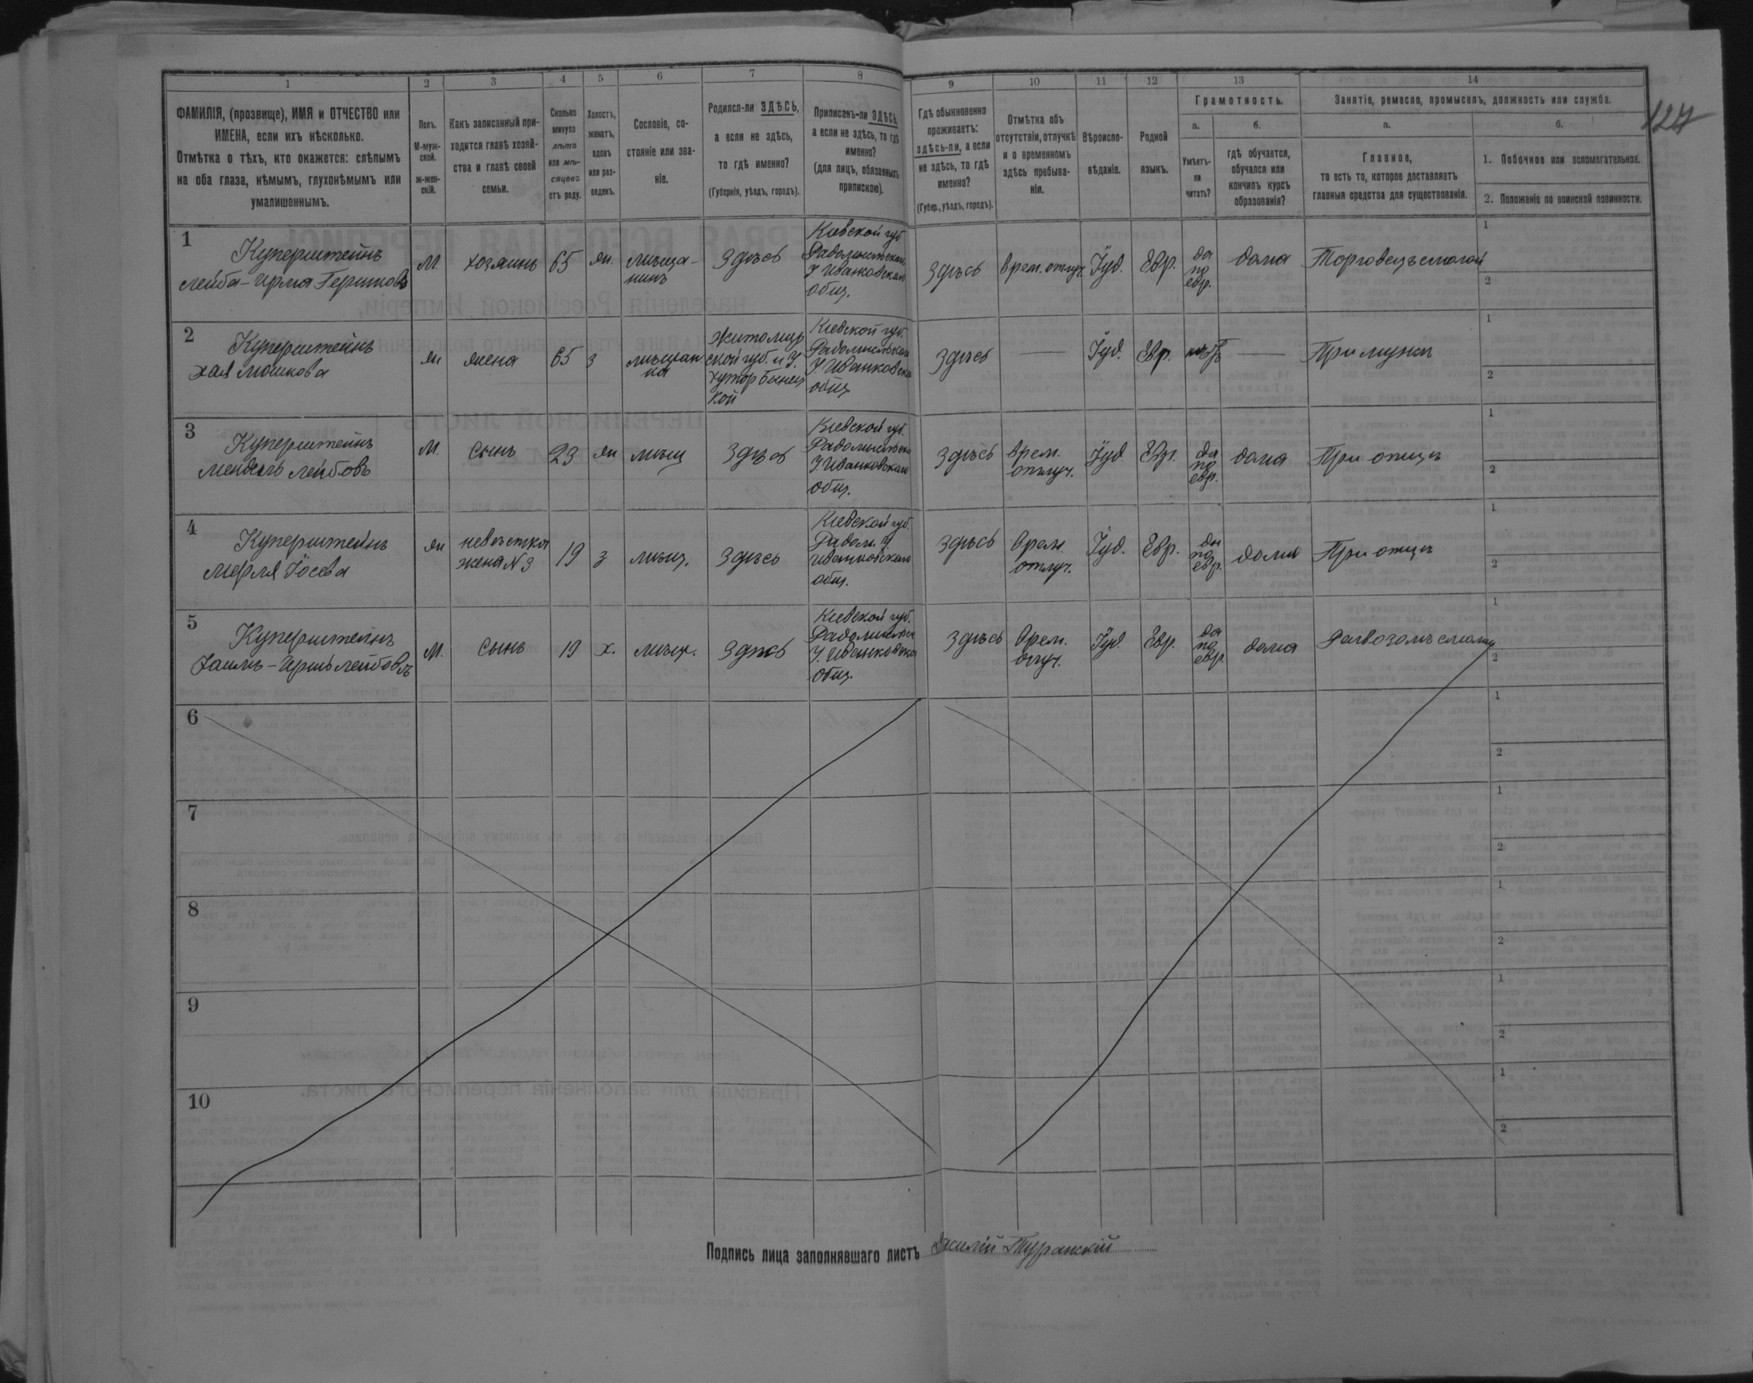 1
2
3
4
5
6
7
8
9
10
11
12
13
14
127
ФАМИЛІЯ, (прозвище), ИМЯ и ОТЧЕСТВО или
ИМЕНА, если ихъ нѣсколько.
Отмѣтка о тѣхъ, кто окажется: слѣпымъ
на оба глаза, нѣмымъ, глухонѣмымъ или
умалишеннымъ.
Полъ.
М-муж-
ской.
ж-жен-
скій.
Какъ записанный при-
ходится главѣ хозяй-
ства и главѣ своей
семьи.
Сколько
минуло
лѣтъ
или мѣ-
сяцевъ
отъ роду.
Холостъ,
женатъ,
вдовъ
или раз-
веденъ.
Сословіе, со-
стояніе или зва-
ніе.
Родился-ли ЗДѢСЬ,
а если не здѣсь,
то гдѣ именно?
(Губернія, уѣздъ, городъ).
Приписанъ-ли ЗДѢСЬ,
а если не здѣсь, то гдѣ
именно?
(для лицъ, обязанныхъ
припискою).
Гдѣ обыкновенно
проживаетъ:
здѣсь-ли, а если
не здѣсь, то гдѣ
именно?
(Губер., уѣздъ, городъ).
Отмѣтка объ
отсутствіи, отлучкѣ
и о временномъ
здѣсь пребыва-
ніи.
Вѣроиспо-
вѣданіе.
Родной
языкъ.
Грамотность.
а.
б.
Умѣетъ-
ли
читать?
гдѣ обучается,
обучался или
кончилъ курсъ
образованія?
Занятіе, ремесло, промыселъ, должность или служба.
а.
б.
Главное,
то есть то, которое доставляетъ
главныя средства для существованія.
1. Побочное или вспомогательное.
2. Положеніе по воинской повинности.
1
Куперштейнъ
Лейба-
М
хозяинъ
65
жн.
мѣща-
нинъ
Здѣсь
Кіевской губ
Радомысльской
У Иванковскаго
общ.
Здѣсь
врем. отлуч.
Іуд.
Евр.
да
по
евр.
дома
Торговецъ смолой
1
2
2
Куперштейнъ
Хая Мошкова
жн
жена
65
з
мѣщан
ка
Житомир
ской губ. и у.
хутор
кой
Кіевской губ.
Радомысльской
У Иванковскаго
общ
Здѣсь
—
Іуд.
Евр.
нѣтъ
—
При мужѣ
1
2
3
Куперштейнъ
Мендель Лейбовъ
М
сынъ
23
жн
мѣщ
Здѣсь
Кіевской губ.
Радомысльской
У Иванковскаго
общ.
Здѣсь
врем.
отлуч.
Іуд.
Евр.
да
по
евр.
дома
При отцѣ
1
2
4
Куперштейнъ
Іосева
жн
невѣстка
жена N 3
19
з
мѣщ.
Здѣсь
Кіевской губ.
Радом. У
Иванковскаго
общ.
Здѣсь
врем
отлуч.
Іуд.
Евр.
да
по
евр.
дома
При отцѣ
1
2
5
Куперштейнъ
Хаимъ-Гершъ Лейбовъ
М.
сынъ
19
х.
мѣщ.
Здѣсь
Кіевской губ.
Радомысльск
У. Иванковскаго
общ.
Здѣсь
врем.
отлуч.
Іуд
Евр.
да
по
евр.
дома
1
2
6
1
2
7
1
2
8
1
2
9
1
2
10
1
2
Подпись лица заполнявшаго листъ Василій Туранскій